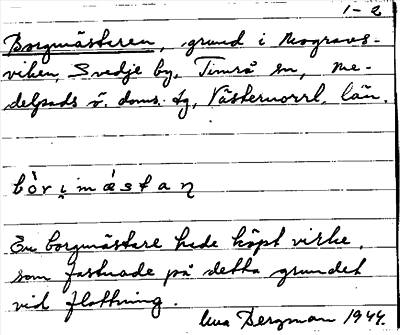 1-2
Borgmästaren, grund i Mogravs-
viken, Svedje by, Timrå sn, Me-
delpads ö. doms. tg, Västernorrl. län.
bòrịmǽstaṇ
En borgmästare hade köpt virke,
som fastnade på detta grundet
vid flottning.
Bergman 1944.